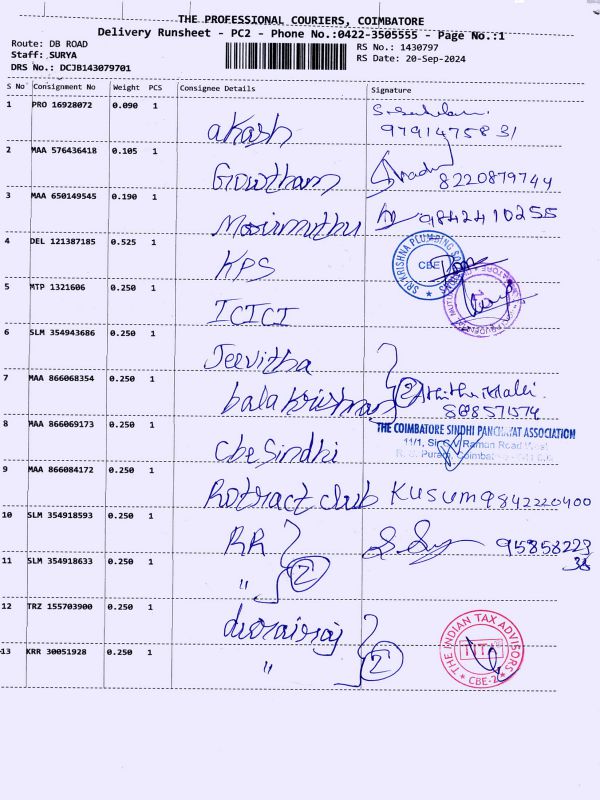 THE PROFESSIONAL COURIERS, COIMBATORE
Delivery Runsheet - PC2 - Phone No.:0422-3505555 - Page No.:1
Route: DB ROAD
Staff: SURYA
DRS No.: DCJB143079701
RS No.: 1430797
RS Date: 20-Sep-2024
S No Consignment No Weight PCS Consignee Details Signature
1 PRO 16928072 0.090 1 akash 9791475831
2 MAA 576436418 0.105 1 Gowtham 8220879744
3 MAA 650149545 0.190 1 Moorimuthu 9842410255
4 DEL 121387185 0.525 1 KPS
SRI KRISHNA PLUMBING
CBE
5 MTP 1321606 0.250 1 ICICI
6 SLM 354943686 0.250 1 Jeevitha
7 MAA 866068354 0.250 1 balakrishnan 2
8 MAA 866069173 0.250 1 Cbe Sindhi
THE COIMBATORE SINDHI PANCHAYAT ASSOCIATION
11/1, Sir C V Raman Road West
R. S. Puram, Coimbatore
9 MAA 866084172 0.250 1 Rotract club Kusum 9842220400
10 SLM 354918593 0.250 1 RR 2 9585822338
11 SLM 354918633 0.250 1 "
12 TRZ 155703900 0.250 1 devrairaj 2
THE INDIAN TAX ADVISORS
CBE-2
13 KRR 30051928 0.250 1 "